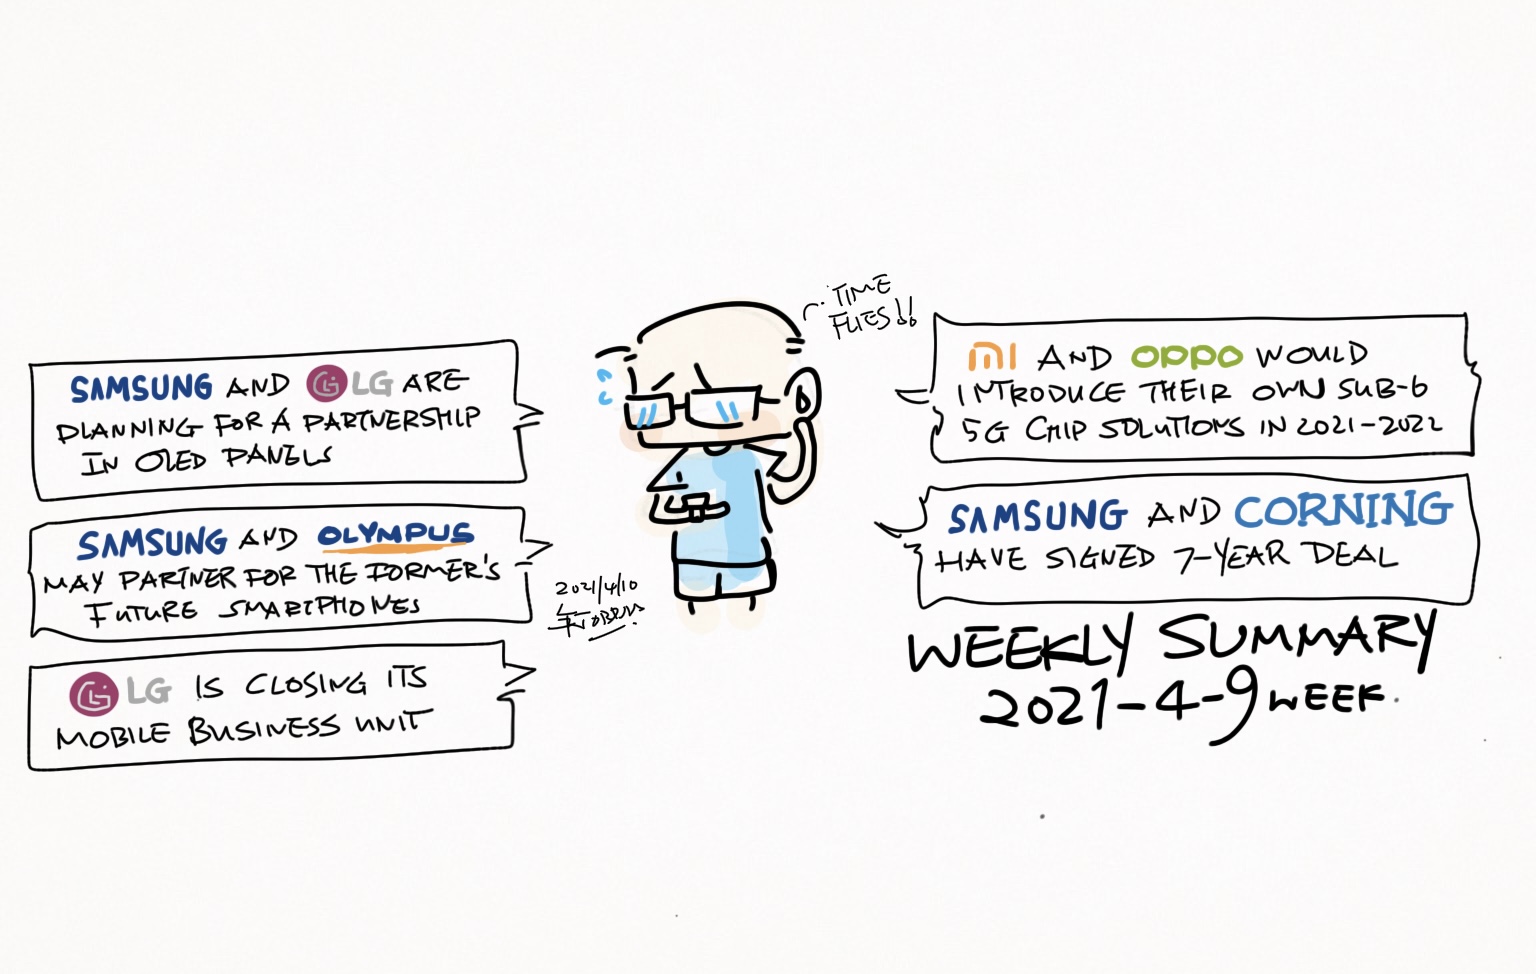 SAMSUNG AND LG ARE
PLANNING FOR A PARTNERSHIP
IN OLED PANELS
SAMSUNG AND OLYMPUS
MAY PARTNER FOR THE FORMER'S
FUTURE SMARTPHONES
LG IS CLOSING ITS
MOBILE BUSINESS UNIT
TIME
FLIES!!
2021/4/10
MI AND OPPO WOULD
INTRODUCE THEIR OWN SUB-6
5G CHIP SOLUTIONS IN 2021-2022
SAMSUNG AND CORNING
HAVE SIGNED 7-YEAR DEAL
WEEKLY SUMMARY
2021-4-9 WEEK.